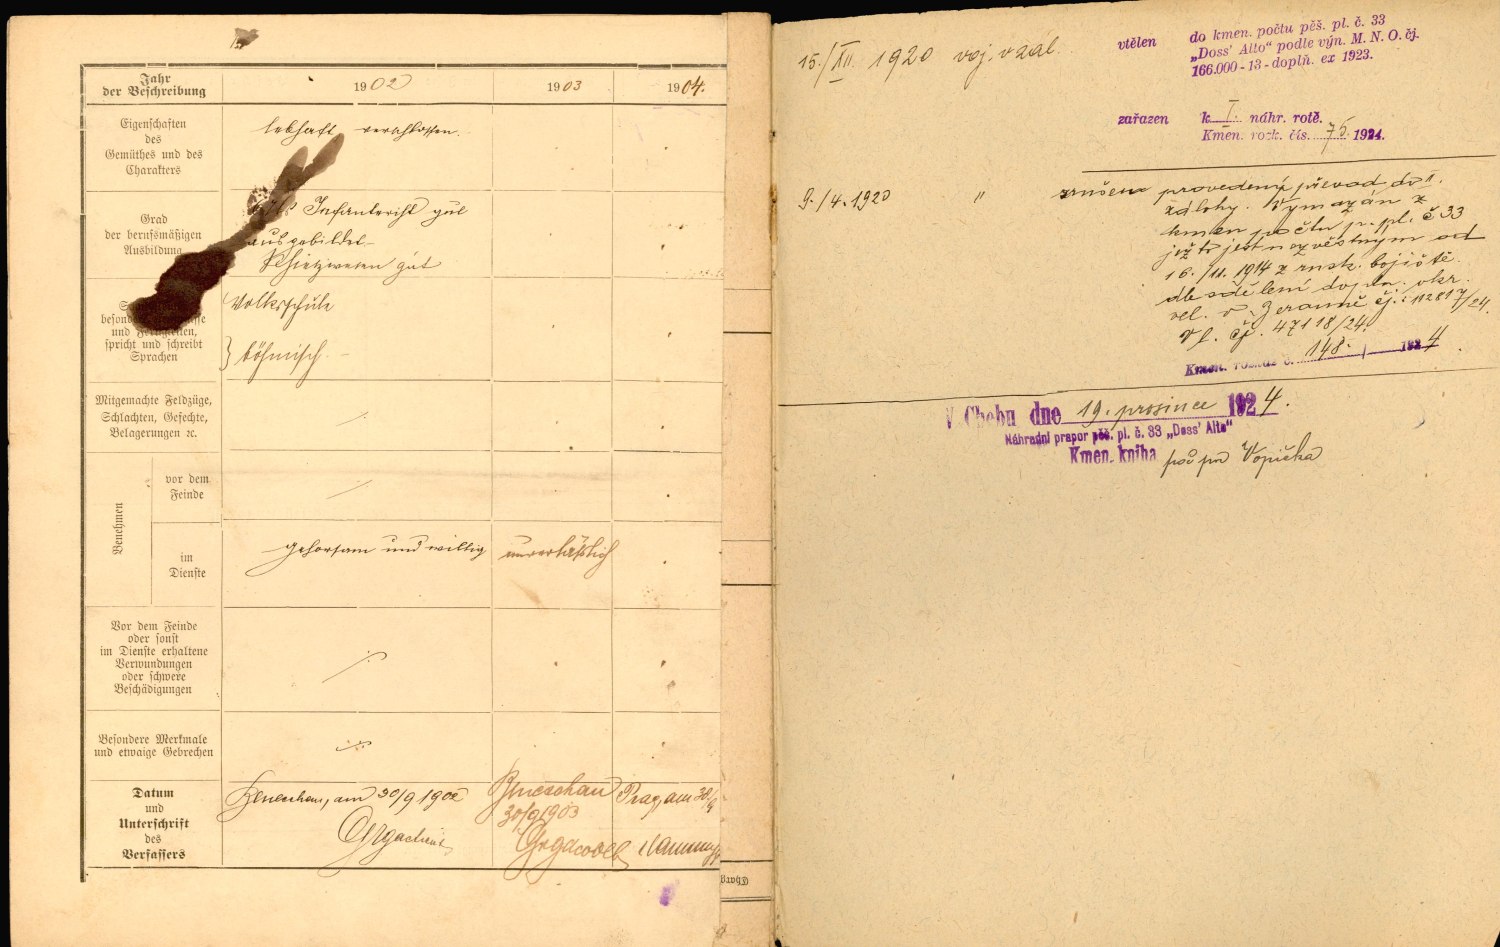 Jahr
der Beschreibung
1902
1903
1904.
Eigenschaften
des
Gemüthes und des
Charakters
lebhaft verschlossen.
Grad
der berufsmäßigen
Ausbildung
Infanterist gut
ausgebildet
Schießwesen gut
besond
und Fertigkeiten,
spricht und schreibt
Sprachen
Volksschule
} böhmisch.
Mitgemachte Feldzüge,
Schlachten, Gefechte,
Belagerungen ꝛc.
Benehmen
vor dem
Feinde
im
Dienste
gehorsam und willig
unverläßlich
Vor dem Feinde
oder sonst
im Dienste erhaltene
Verwundungen
oder schwere
Beschädigungen
Besondere Merkmale
und etwaige Gebrechen
Datum
und
Unterschrift
des
Verfassers
Beneschau, am 30/9 1902
Beneschau
30/9 1903
Prag, am 30/9
15./XII. 1920 voj. v zál.
vtělen do kmen. počtu pěš. pl. č. 33
„Doss' Alto“ podle výn. M. N. O. čj.
166.000 - 13 - doplň. ex 1923.
zařazen k I. náhr. rotě.
Kmen. rozk. čís. 75. 1924.
9./4. 1920 "
zrušen provedený převod do II.
zálohy. Vymazán z
kmen. počtu p. pl. č 33
ježto jest nezvěstným od
16./11. 1914 z rusk. bojiště
dle sdělení dopln. okr.
vel. v Berouně čj.: 112817/24.
Vl. čj. 47118/24.
Kmen. rozkaz č. 148. / 1924
V Chebu dne 19. prosince 1924.
Náhradní prapor pěš. pl. č. 33 „Doss' Alto“
Kmen. kniha
Vopička